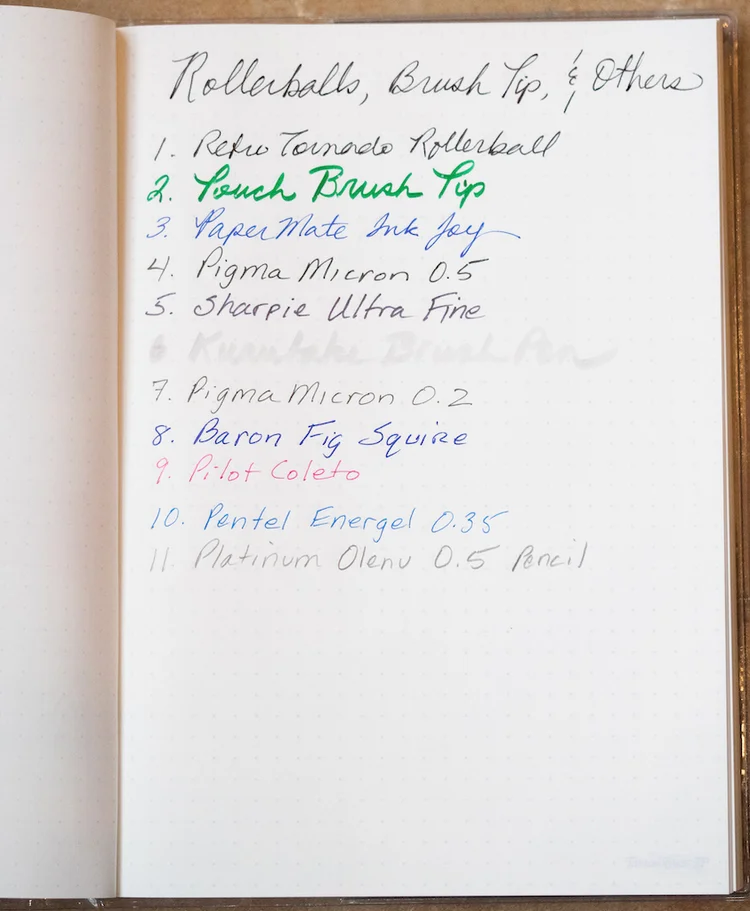 Rollerballs, Brush Tip, & Others
1. Retro Tornado Rollerball
2. Touch Brush Tip
3. PaperMate Ink Joy
4. Pigma Micron 0.5
5. Sharpie Ultra Fine
6 Kuretake Brush Pen
7. Pigma Micron 0.2
8. Baron Fig Squire
9. Pilot Coleto
10. Pentel Energel 0.35
11. Platinum Olenu 0.5 Pencil